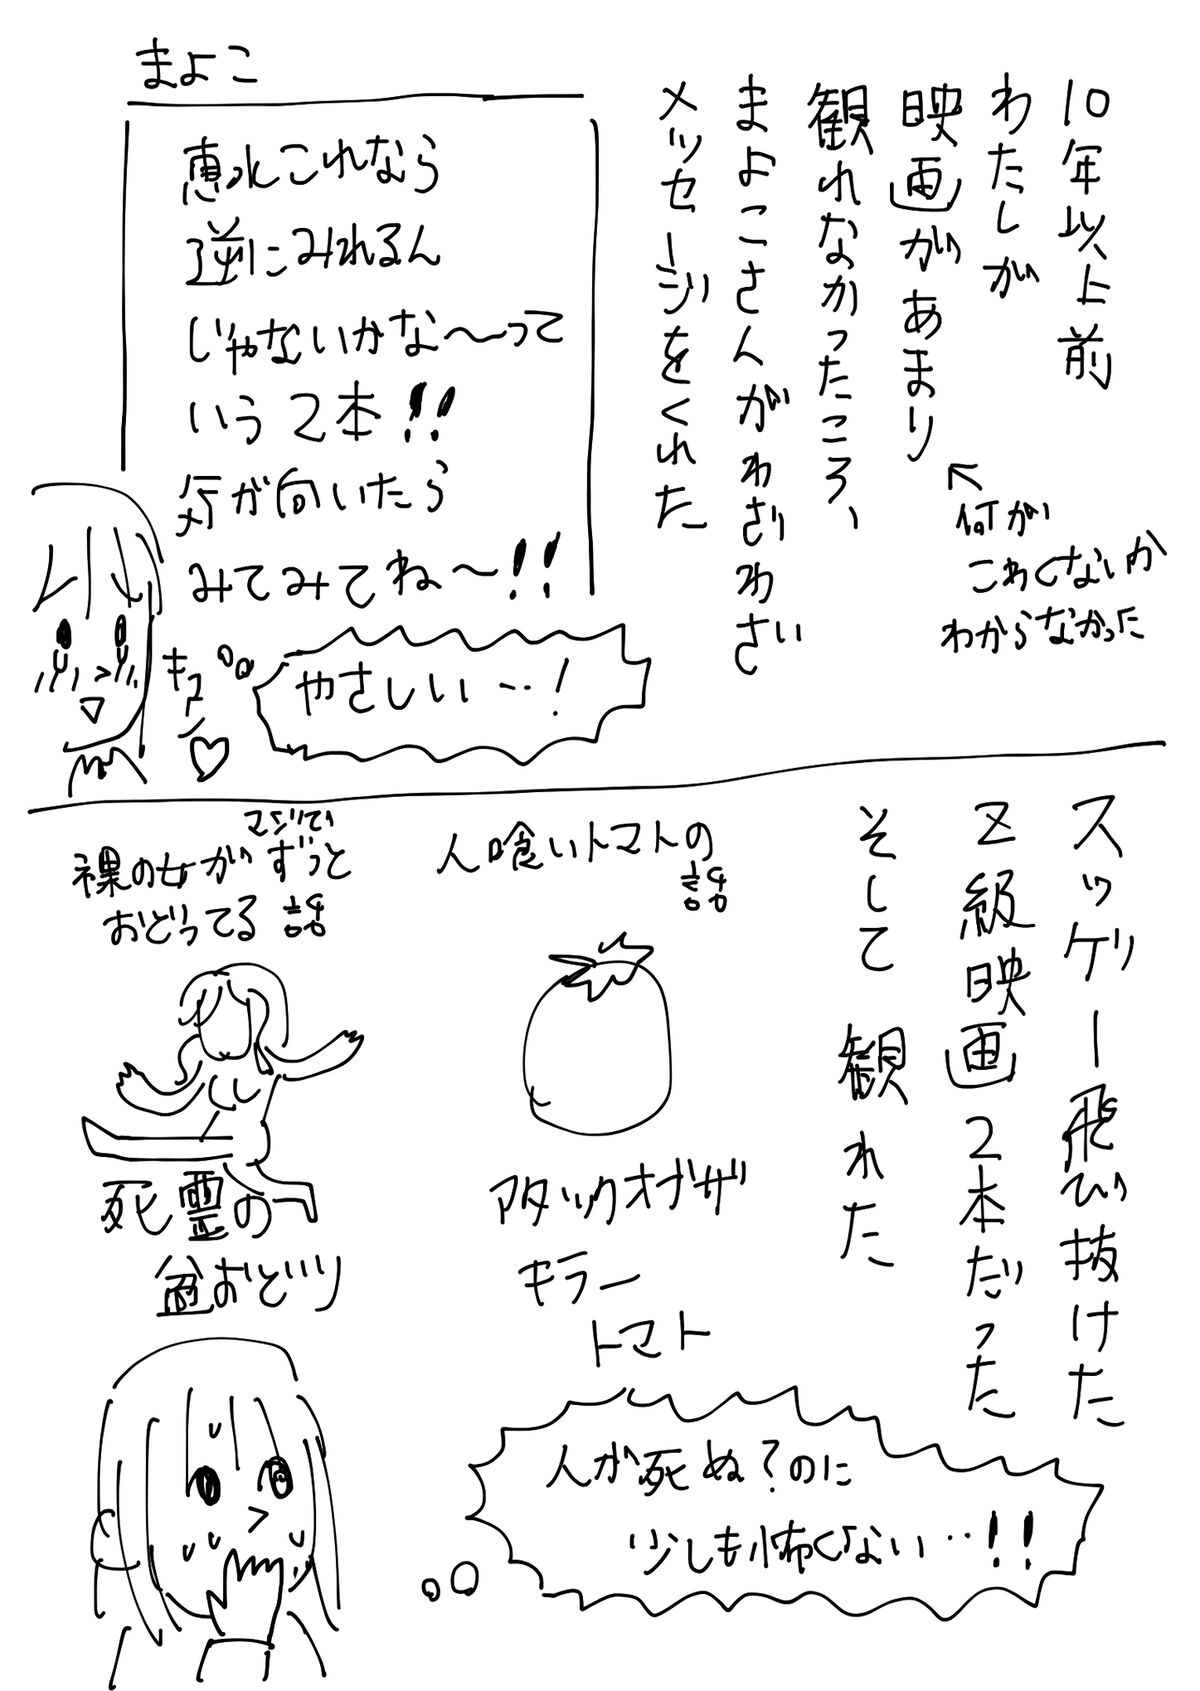 10年以上前
わたしが
映画があまり
観れなかったころ、
まよこさんがわざわざ
メッセージをくれた
←何が
こわくないか
わからなかった
まよこ
恵水これなら
逆にみれるん
じゃないかな〜って
いう2本!!
気が向いたら
みてみてね〜!!
やさしい…!
キュン♡
スッゲー飛び抜けた
Z級映画2本だった
そして観れた
人喰いトマトの
話
アタックオブザ
キラー
トマト
マジで
裸の女がずっと
おどってる話
死霊の
盆おどり
人が死ぬ?のに
少しも怖くない…!!